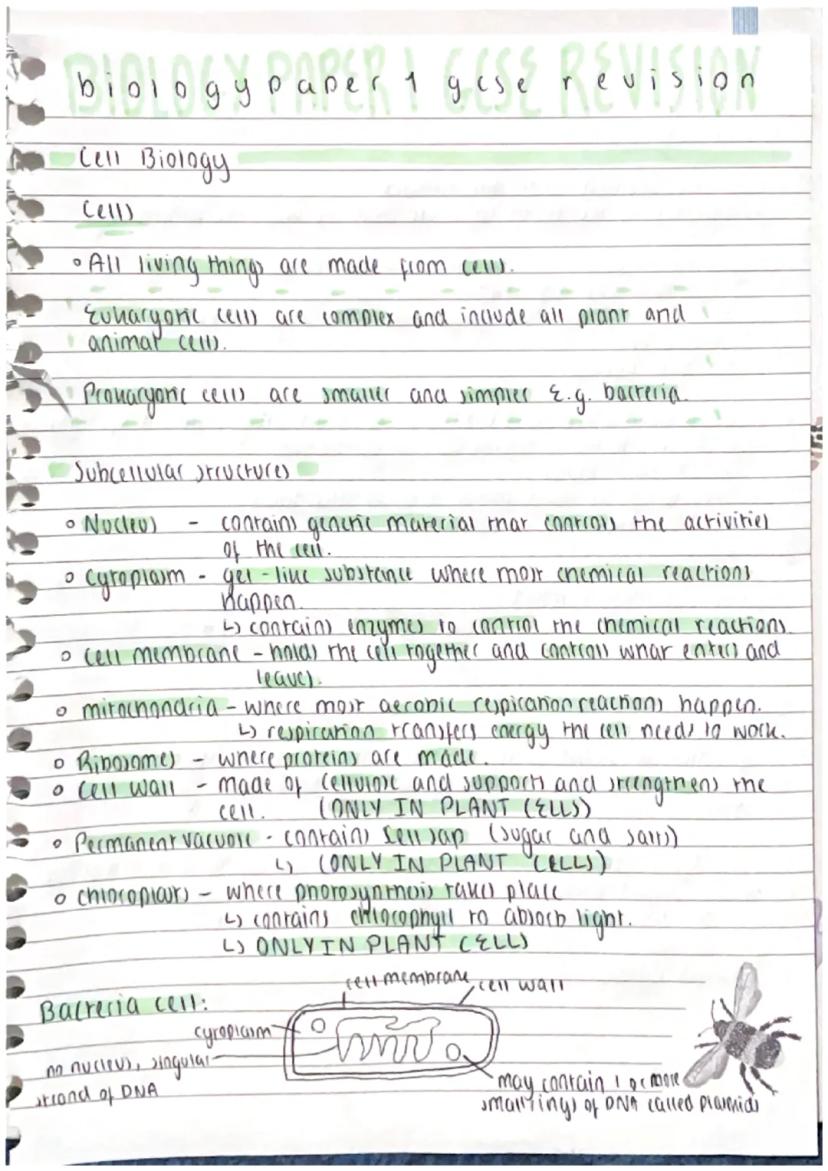 BIOLOGY PAPER 1 GCSE REVISION
biology paper 1 gcse revision
Cell Biology
Cells
◦ All living things are made from cells.
Eukaryotic cells are complex and include all plant and
animal cells.
Prokaryotic cells are smaller and simpler E.g. bacteria.
Subcellular structures
◦ Nucleus - contains genetic material that controls the activities
of the cell.
◦ Cytoplasm - gel-like substance where most chemical reactions
happen.
↳ contains enzymes to control the chemical reactions.
◦ Cell membrane - holds the cell together and controls what enters and
leaves.
◦ mitochondria - where most aerobic respiration reactions happen.
↳ respiration transfers energy the cell needs to work.
◦ Ribosomes - where proteins are made.
◦ Cell wall - made of cellulose and supports and strengthens the
cell. (ONLY IN PLANT CELLS)
◦ Permanent vacuole - contains cell sap (sugar and salts)
↳ (ONLY IN PLANT CELLS)
◦ chloroplasts - where photosynthsis takes place
↳ contains chlorophyll to absorb light.
↳ ONLY IN PLANT CELLS
Bacteria cell:
cell membrane
cell wall
cytoplasm
no nucleus, singular
strand of DNA
may contain 1 or more
small rings of DNA called plasmids